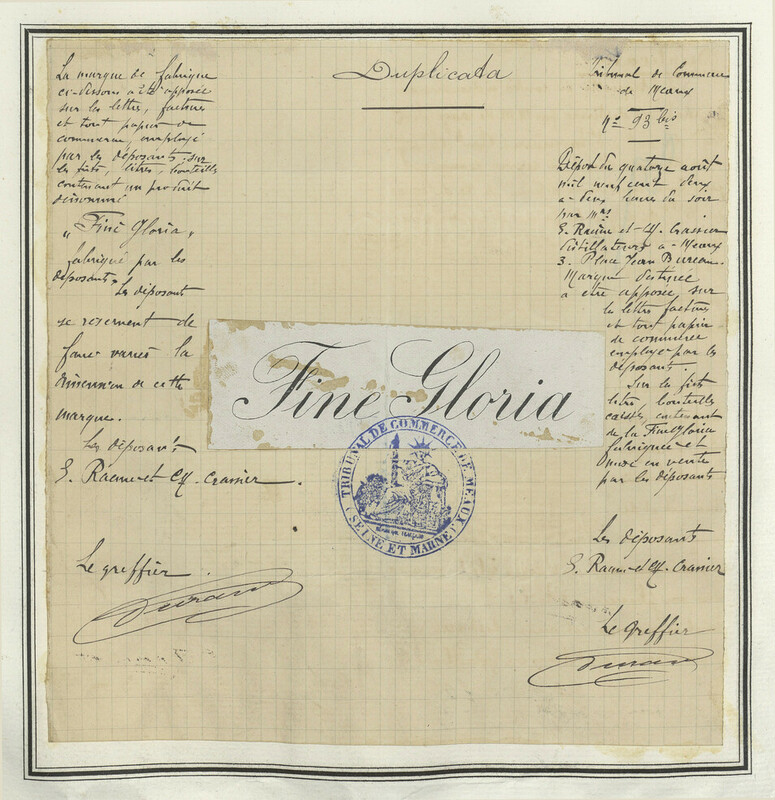 Duplicata
La marque de fabrique
ci-dessous a été apposée
sur les lettres, factures
et tout papier de
commerce, employé
par les déposants, sur
les fûts, litres, bouteilles
contenant un produit
dénommé
"Fine Gloria"
fabriqué par les
déposants.
Les déposants
se reservent de
faire varier la
dimension de cette
marque.
Les déposants
E. Racine et Crassier.
Le greffier
Tribunal de Commerce
de Meaux
No 93 bis
Dépôt du quatorze août
mil neuf cent deux
a deux heures du soir
par mrs
E. Racine et Crassier
distillateurs a Meaux
3. Place Jean Bureau.
Marque destinée
a être apposée sur
les lettres factures
et tout papier
de commerce
employé par les
déposants.
Sur les fûts
litres, bouteilles
caisses contenant
de la Fine Gloria
fabriquée et
mise en vente
par les déposants
Les déposants
E. Racine et Crassier
Le greffier
Fine Gloria
TRIBUNAL DE COMMERCE DE MEAUX
(SEINE ET MARNE)